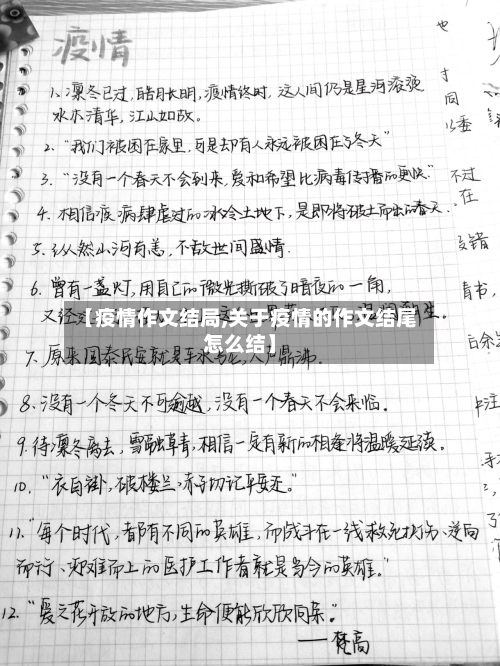 疫情
1、凛冬已过,皓月长明,疫情终时,这人间仍是星河滚烫
水木清华,江山如故。
2、“我们被困在家里,可是却有人永远被困在了冬天”
3、“没有一个春天不会到来,爱和希望比病毒传播的更快”
4、相信疫病肆虐过的冰冷土地下,是即将破土而出的春天.
5、纵然山河有恙,不敌世间盛情.
6、曾有一盏灯,用自己的微光撕破了暗夜的一角,
又经
生。
【疫情作文结局,关于疫情的作文结尾
怎么结】
7、原来国泰民安就是车水马龙,人户鼎沸.
8、没有一个冬天不可逾越,没有一个春天不会来临。
9、待凛冬离去,雪融草青,相信一定有新的相逢将温暖延续。
10、“衣白褂,破楼兰,赤子切记平安还。”
11、“每个时代,都有不同的英雄,而战斗在一线救死扶伤、逆向
而行、迎难而上的医护工作者就是当今的英雄。”
12、“爱之花开放的地方,生命便能欣欣向荣。”
——梵高
也
寸
同
以委
不过
在
青书,